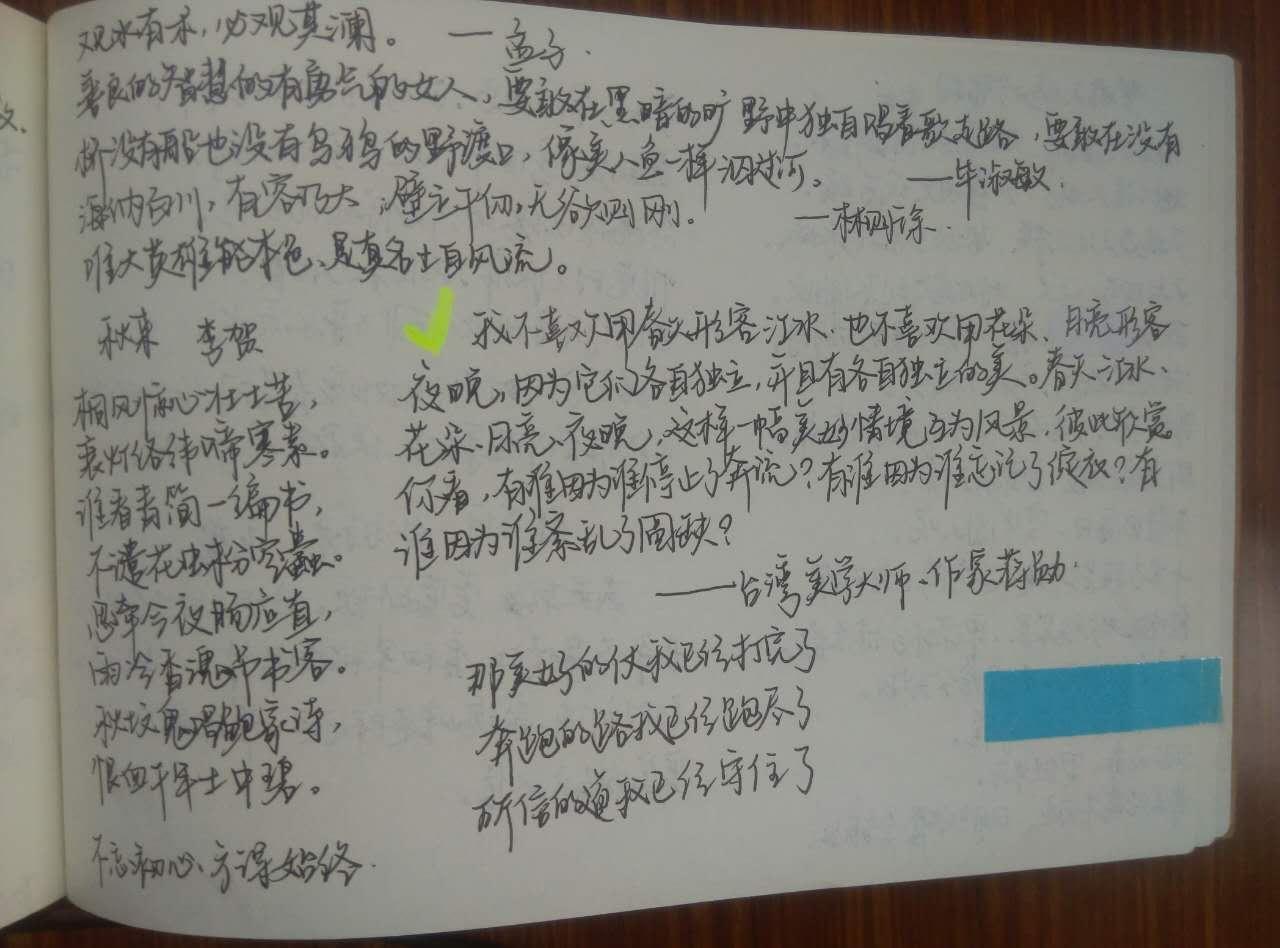 观水有术，必观其澜。 —孟子.
善良的智慧的有勇气的女人，要敢在黑暗的旷野中独自唱着歌走路，要敢在没有
桥没有船也没有乌鸦的野渡口，像美人鱼一样泅过河。 —毕淑敏.
海纳百川，有容乃大，壁立千仞，无欲则刚。 —林则徐.
唯大英雄能本色、是真名士自风流。
秋来 李贺
桐风惊心壮士苦，
衰灯络纬啼寒素。
谁看青简一编书，
不遣花虫粉空蠹。
思牵今夜肠应直，
雨冷香魂吊书客。
秋坟鬼唱鲍家诗，
恨血千年土中碧。
不忘初心、方得始终.
我不喜欢用春天形容江水.也不喜欢用花朵、月亮形容
夜晚，因为它们各自独立，并且有各自独立的美。春天江水、
花朵、月亮、夜晚，这样一幅美妙情境互为风景，彼此欣赏。
你看，有谁因为谁停止了奔流？有谁因为谁忘记了绽放？有
谁因为谁紊乱了圆缺？
——台湾美学大师、作家蒋勋.
那美好的仗我已经打完了
奔跑的路我已经跑尽了
所信的道我已经守住了